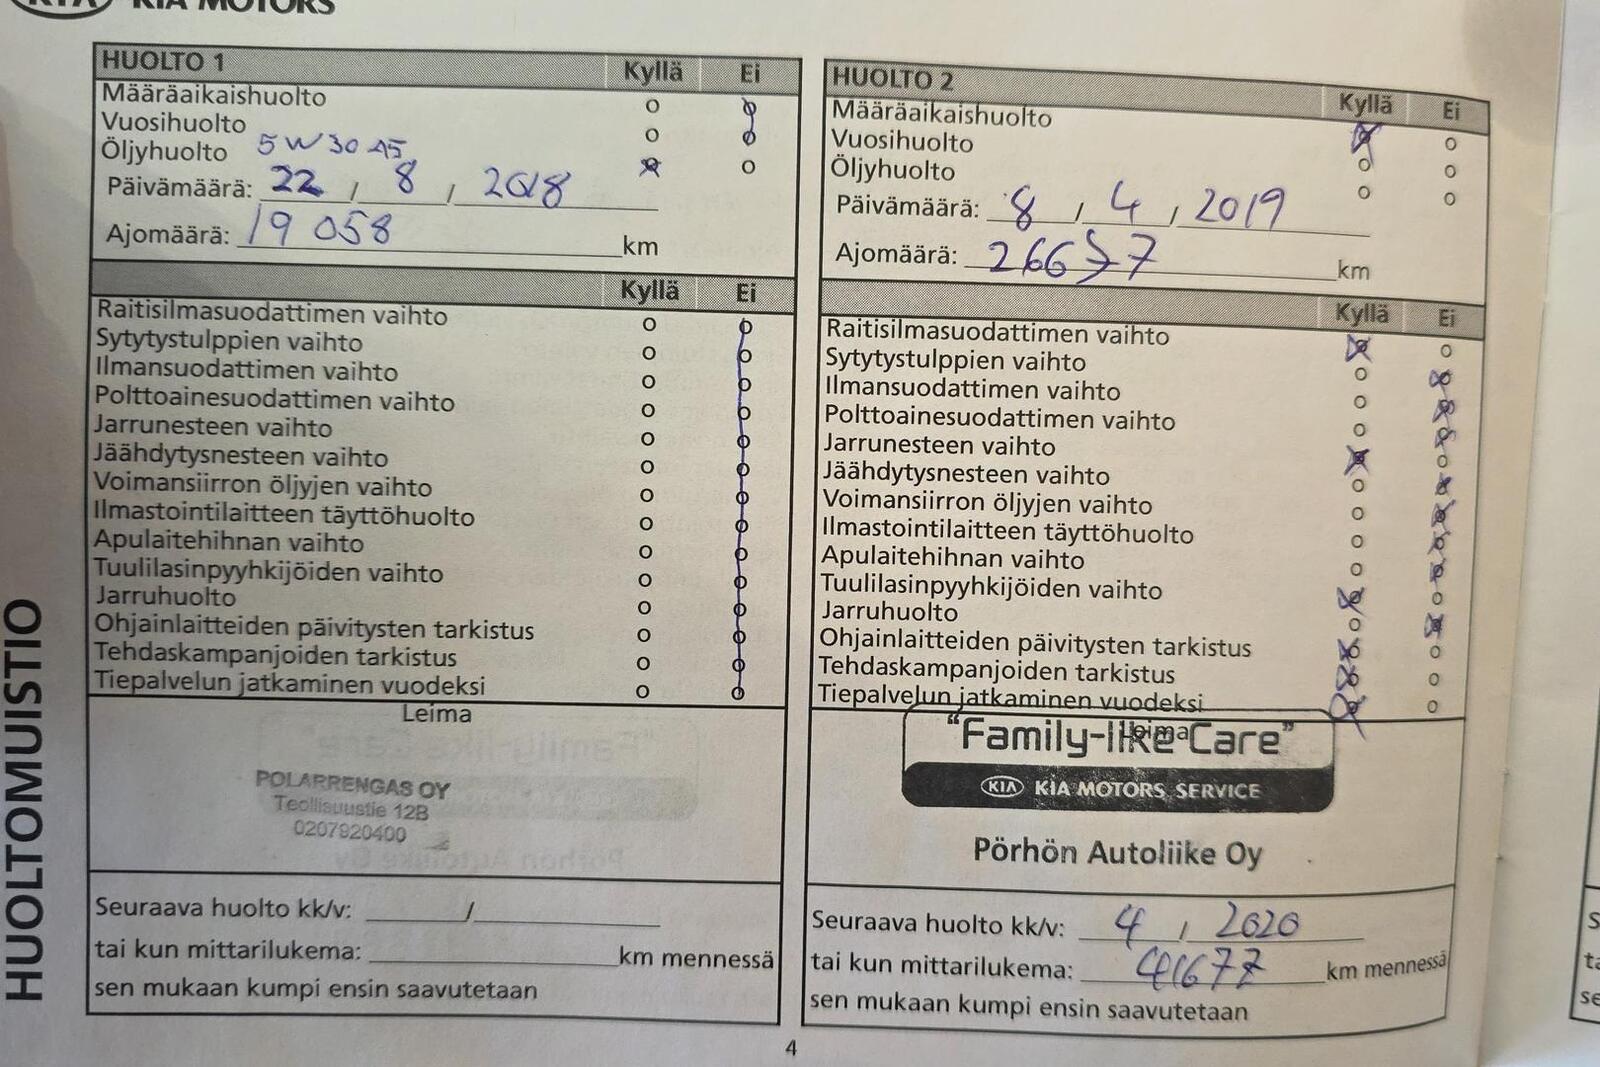 KIA KIA MOTORS
HUOLTOMUISTIO
HUOLTO 1 Kyllä Ei
Määräaikaishuolto
Vuosihuolto
Öljyhuolto 5W30 A5
Päivämäärä: 22 / 8 / 2018
Ajomäärä: 19 058 km
Kyllä Ei
Raitisilmasuodattimen vaihto
Sytytystulppien vaihto
Ilmansuodattimen vaihto
Polttoainesuodattimen vaihto
Jarrunesteen vaihto
Jäähdytysnesteen vaihto
Voimansiirron öljyjen vaihto
Ilmastointilaitteen täyttöhuolto
Apulaitehihnan vaihto
Tuulilasinpyyhkijöiden vaihto
Jarruhuolto
Ohjainlaitteiden päivitysten tarkistus
Tehdaskampanjoiden tarkistus
Tiepalvelun jatkaminen vuodeksi
Leima
POLARRENGAS OY
Teollisuustie 12B
0207920400
Seuraava huolto kk/v: /
tai kun mittarilukema: km mennessä
sen mukaan kumpi ensin saavutetaan
HUOLTO 2 Kyllä Ei
Määräaikaishuolto
Vuosihuolto
Öljyhuolto
Päivämäärä: 8 / 4 / 2019
Ajomäärä: 26677 km
Kyllä Ei
Raitisilmasuodattimen vaihto
Sytytystulppien vaihto
Ilmansuodattimen vaihto
Polttoainesuodattimen vaihto
Jarrunesteen vaihto
Jäähdytysnesteen vaihto
Voimansiirron öljyjen vaihto
Ilmastointilaitteen täyttöhuolto
Apulaitehihnan vaihto
Tuulilasinpyyhkijöiden vaihto
Jarruhuolto
Ohjainlaitteiden päivitysten tarkistus
Tehdaskampanjoiden tarkistus
Tiepalvelun jatkaminen vuodeksi
Leima
"Family-like Care"
KIA KIA MOTORS SERVICE
Pörhön Autoliike Oy
Seuraava huolto kk/v: 4 / 2020
tai kun mittarilukema: 41677 km mennessä
sen mukaan kumpi ensin saavutetaan
4